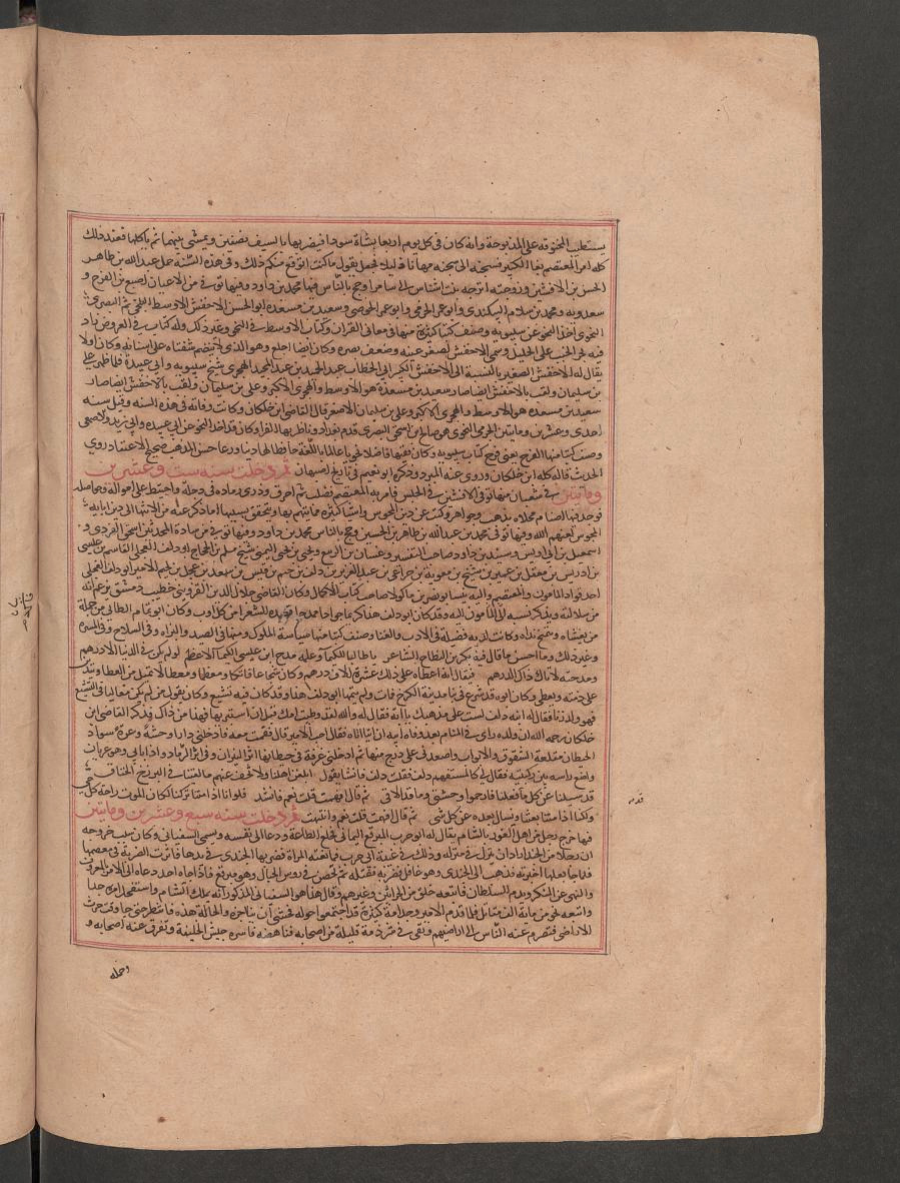 يستطب المخنوقه على المذبوحة وانه كان فى كل يوم اربعا بشاة سودا فيضربها بالسيف نصفين ويمشى بينهما ثم ياكلها فعند ذلك
امر المعتصم بغا الكبير فسجنه فجعل يقول ما كنت اتوقع منكم ذلك وفى هذه السنة حمل عبد الله بن طاهر
الحسن بن الافشين وزوجته اترجه بنت اشناس الى سامرا وحج بالناس فيها محمد بن داود وفيها توفى من الاعيان اصبغ بن الفرج و
سعدويه ومحمد بن سلام البيكندى وابو عمر الجرمى وابو عمر الحوضى وسعيد بن مسعده ابو الحسن الاخفش الاوسط البلخى ثم البصرى
النحوى اخذ النحو عن سيبويه وصنف كتبا كثيرة منها فى معانى القران وكتاب الاوسط فى النحو وغير ذلك وله كتاب فى العروض زاد
فيه بحر الخبب على الخليل وسمى الاخفش لصغر عينيه وضعف بصره وكان ايضا اجلع وهو الذى لا تنضم شفتاه على اسنانه وكان اولا
يقال له الاخفش الصغير بالنسبة الى الاخفش الكبير ابى الخطاب عبد الحميد بن عبد المجيد الهجرى شيخ سيبويه وابى عبيدة فلما ظهر على
بن سليمان ولقب بالاخفش ايضا صار سعيد بن مسعده هو الاوسط والهجرى الاكبر وعلى بن سليمان ولقب بالاخفش ايضا صار
سعيد بن مسعده هو الاوسط والهجرى الاكبر وعلى بن سليمان الاصغر قال القاضى ابن خلكان وكانت وفاته فى هذه السنه وقيل سنه
احدى وعشرين ومايتين الجرمى النحوى هو صالح بن اسحق البصرى قدم بغداد وناظر بها الفرا وكان قد اخذ النحو عن ابى عبيده وابى زيد والاصمعى
وصنف كتبا منها الفرخ يعنى فرخ كتاب سيبويه وكان فقيها فاضلا نحويا عالما باللغة حافظا لها دينا ورعا حسن المذهب صحيح الاعتقاد روى
الحديث قاله كله ابن خلكان وروى عنه المبرد وذكره ابو نعيم فى تاريخ اصبهان ثم دخلت سنه ست وعشرين
ومايتين فى شعبان منها توفى الافشين فى الحبس فامر به المعتصم فصلب ثم احرق وذرى رماده فى دجلة واحتيط على امواله وحواصله
فوجد فيها اصنام محلاه بذهب وجواهر وكتب عن دين المجوس واشيا كثيره مما يتهم بها ويتحقق بسببها ما ذكر عنه من الانتما الى دين ابايه
المجوس لعنهم الله وفيها توفى محمد بن عبد الله بن طاهر بن الحسين وحج بالناس محمد بن داود وفيها توفى من سادة المحدثين اسحق الفروى و
اسمعيل بن ابى اويس وسنيد بن داود صاحب التفسير وغسان بن الربيع ويحيى بن يحيى التميمى شيخ مسلم بن الحجاج ابو دلف العجلى القاسم بن عيسى
بن ادريس بن معقل بن عمير بن شيخ بن معوية بن خزاعى بن عبد العزيز بن دلف بن جشم بن قيس بن سعد بن عجل بن لجيم الامير ابو دلف العجلى
احد قواد المامون والمعتصم واليه ينسب ابو نصر بن ماكولا صاحب كتاب الاكمال وكان القاضى جلال الدين القزوينى خطيب دمشق يزعم انه
من سلالته ويذكر نسبه اليه وقد كان ابو دلف هذا كريما جوادا ممدحا قصده الشعرا من كل اوب وكان ابو تمام الطائى من جملة
من يغشاه ويستمنح نداه وكانت لديه فضيلة فى الادب والغنا وصنف كتبا منها سياسة الملوك ومنها فى الصيد والبزاه وفى السلاح
وغير ذلك وما احسن ما قال فيه بكر بن النطاح الشاعر يا طالبا للكيميا وعلمه مدح ابن عيسى الكيميا الاعظم لو لم يكن فى الدنيا الا درهم
ومدحته لاتاك ذاك الدرهم فيقال انه اعطاه على ذلك عشرة الاف درهم وكان شجاعا فاتكا ومعطيا
وكان ابوه قد شرع فى بنا مدينة الكرخ فمات ولم يتمها فاتمها ابو دلف هذا وقد كان فيه تشيع وكان يقول من لم يكن مغاليا فى التشيع
فهو ولد زنا فقال له ابنه دلف لست على مذهبك يا ابه فقال له والله لقد وطيت امك قبل ان استبريها فهذا من ذاك وذكر القاضى ابن
خلكان رحمه الله ان ولده راى فى المنام بعد وفاة ابيه ان اتيا اتاه فقال اجب الامير قال فقمت معه فادخلنى دارا وحشة وعرة سودا
الحيطان مقلعة السقوف والابواب واصعدنى على درج منها ثم ادخلنى غرفة فى حيطانها اثر النيران وفى ارضها الرماد واذا بابى وهو عريان
واضع راسه بين ركبتيه فقال لى كالمستفهم دلف فقلت دلف فانشا يقول ابلغن اهلنا ولا تخف عنهم ما لقينا فى البرزخ الخناق
قد سئلنا عن كل ما فعلنا فارحموا وحشتى وما قد الاقى ثم قال افهمت قلت نعم فانشد فلو انا اذا متنا تركنا لكان الموت راحة كل حى
ولكنا اذا متنا بعثنا ونسال بعده عن كل شى ثم قال افهمت قلت نعم وانتبهت ثم دخلت سنه سبع وعشرين ومايتين
فيها خرج رجل من اهل الغور بالشام يقال له ابو حرب المبرقع اليمانى فخلع الطاعة ودعا الى نفسه ويسمى السفيانى وكان سبب خروجه
ان رجلا من الجند اراد ان ينزل فى منزله وذلك فى غيبة ابى حرب فمانعته المراة فضربها الجندى فى يدها فاثرت الضربة فى معصمها
فلما جا بعلها اخبرته فذهب الى الجندى وهو غافل فضربه فقتله ثم تحصن فى روس الجبال وهو مبرقع فاذا جاه احد دعاه الى الامر بالمعروف
والنهى عن المنكر ويذم السلطان فاتبعه خلق من الحراثين وغيرهم وقال هذا هو السفيانى المذكور انه يملك الشام واستفحل امره جدا
واتبعه نحو من ماية الف مقاتل فلما قدم الامير وجد امة كثيرة قد اجتمعوا حوله فخشى ان يناجزه والحالة هذه فانتظر حتى جا وقت حرث
الاراضى فتصرم عنه الناس الى اراضيهم وبقى فى شرذمة قليلة من اصحابه فناهضه فاسره جيش الخليفة وتفرق عنه اصحابه و
وحمله